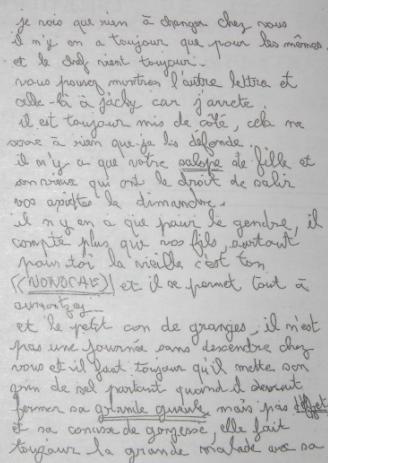 je vois que rien à changer chez vous
il n'y en a toujour que pour les mêmes.
et le chef vient toujour.
vous pouvez montrer l'autre lettre et
celle-là à jacky car j'arrete.
il est toujour mis de coté, cela ne
sere à rien que je les défende.
il n'y a que votre salope de fille et
son vieux qui ont le droit de salir
vos assiettes la dimanche.
il n y en a que pour le gendre, il
compte plus que vos fils, surtout
pour toi la vieille c'est ton
((NONOCAE)) et il se permet tout à
aumontzey
et le petit con de granges, il n'est
pas une journée sans descendre chez
vous et il faut toujour qu'il mette son
grin de sel partout quand il devrait
fermer sa grande gueule mais pas
et sa conasse de gonzesse, elle fait
toujour la grande malade avec sa